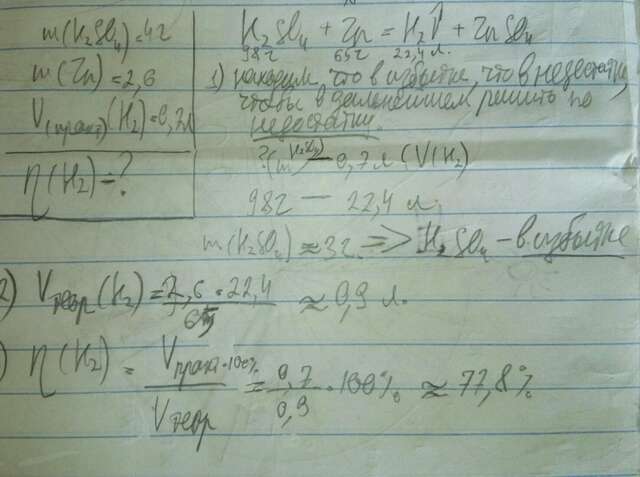 m(H₂SO₄)=4г
m(Zn)=2,6
V(практ)(H₂)=0,7л
η(H₂)-?
H₂SO₄ + Zn = H₂↑ + ZnSO₄
98г 65г 22,4 л.
1) находим что в избытке, что в недостатке,
чтобы в дальнейшем решить по
недостатку.
?(m) — 0,7 л (V(H₂)
98г — 22,4 л.
m(H₂SO₄) ≈ 3г. => H₂SO₄ - в избытке
2) Vтеор(H₂) = 2,6 · 22,4 / 65 ≈ 0,9 л.
) η(H₂) = Vпракт · 100% / Vтеор = 0,7 / 0,9 · 100% ≈ 77,8%